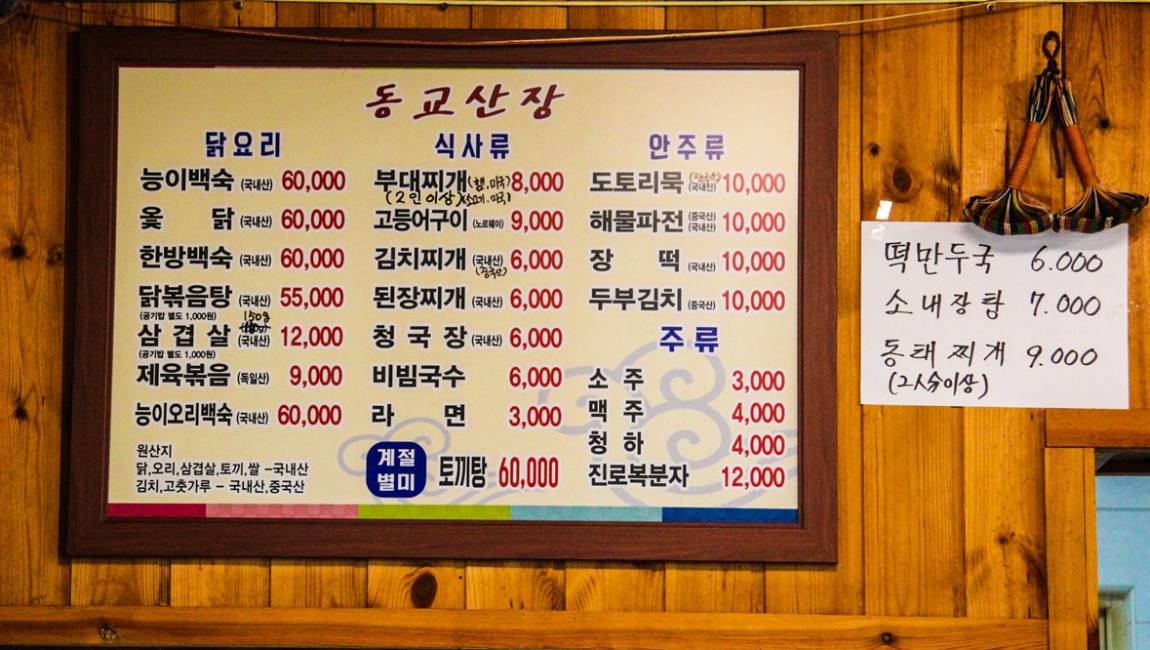 동교산장
닭요리
능이백숙 (국내산) 60,000
옻 닭 (국내산) 60,000
한방백숙 (국내산) 60,000
닭볶음탕 (국내산) 55,000
(공기밥 별도 1,000원)
150g
삼겹살 (국내산) 12,000
(공기밥 별도 1,000원)
제육볶음 (독일산) 9,000
능이오리백숙 (국내산) 60,000
원산지
닭,오리,삼겹살,토끼,쌀 -국내산
김치,고춧가루 - 국내산,중국산
식사류
부대찌개 (햄.미국) 8,000
(2인이상)
고등어구이 (노르웨이) 9,000
김치찌개 (국내산) 6,000
(중국산)
된장찌개 (국내산) 6,000
청국장 (국내산) 6,000
비빔국수 6,000
라 면 3,000
계절
별미
토끼탕 60,000
안주류
도토리묵 (국내산) 10,000
해물파전 (중국산) (국내산) 10,000
장 떡 (국내산) 10,000
두부김치 (중국산) 10,000
주류
소 주 3,000
맥 주 4,000
청 하 4,000
진로복분자 12,000
떡만두국 6.000
소내장탕 7.000
동태찌개 9.000
(2人分이상)